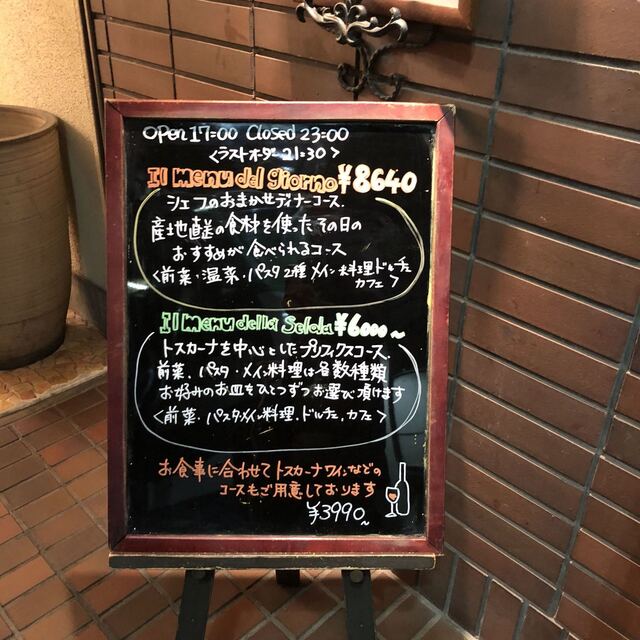 Open 17:00 Closed 23:00
<ラストオーダー 21:30>
Il menu del giorno ¥8640
シェフのおまかせディナーコース.
産地直送の食材を使ったその日の
おすすめが食べられるコース
<前菜・温菜・パスタ2種 メイン料理 ドルチェ
カフェ>
Il menu della Selola ¥6000~
トスカーナを中心としたプリフィクスコース.
前菜、パスタ・メイン料理は各数種類
お好みのお皿をひとつずつお選び頂けます
<前菜、パスタ、メイン料理、ドルチェ、カフェ>
お食事に合わせてトスカーナワインなどの
コースもご用意しております
¥3990~